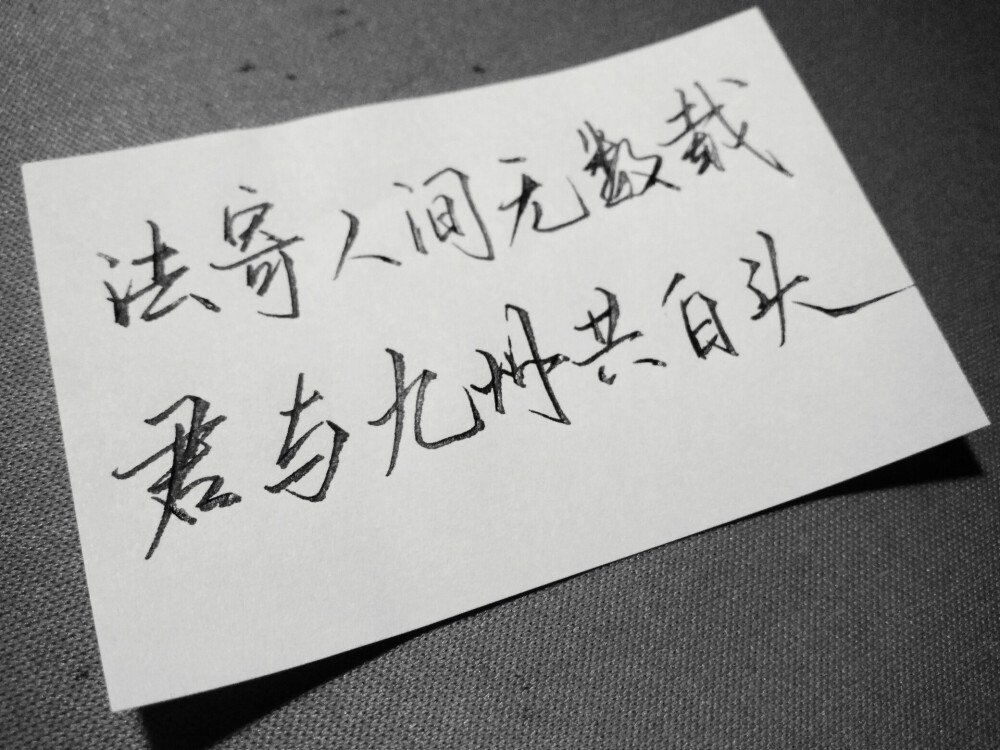 法寄人间无数载
君与九州共白头